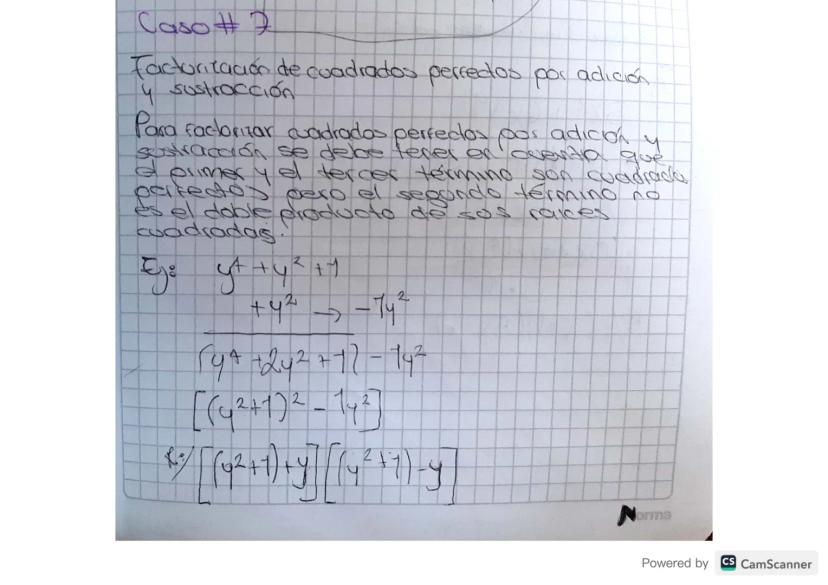 Caso # 7
Factorización de cuadrados perfectos por adición
y sustracción
Para factorizar cuadrados perfectos por adición y
sustracción se debe tener en cuenta que
el primer y el tercer término son cuadrados
perfectos pero el segundo término no
es el doble producto de sus raíces
cuadradas.
Ej: y⁴ + y² + 1
+ y² → - 1y²
(y⁴ + 2y² + 1) - 1y²
[(y²+1)² - 1y²]
R:// [(y²+1)+y] [(y²+1)-y]
Norma
Powered by CS CamScanner